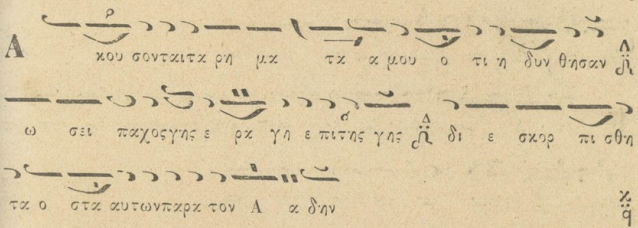 Α κου σονταιτα ρη μα τα α μου ο τι η δυν θησαν Δ
ω σει παχοςγης ε ρα γη ε πιτης γης Δ δι ε σκορ πι σθη
τα ο στα αυτωνπαρα τον Α α δην κ q